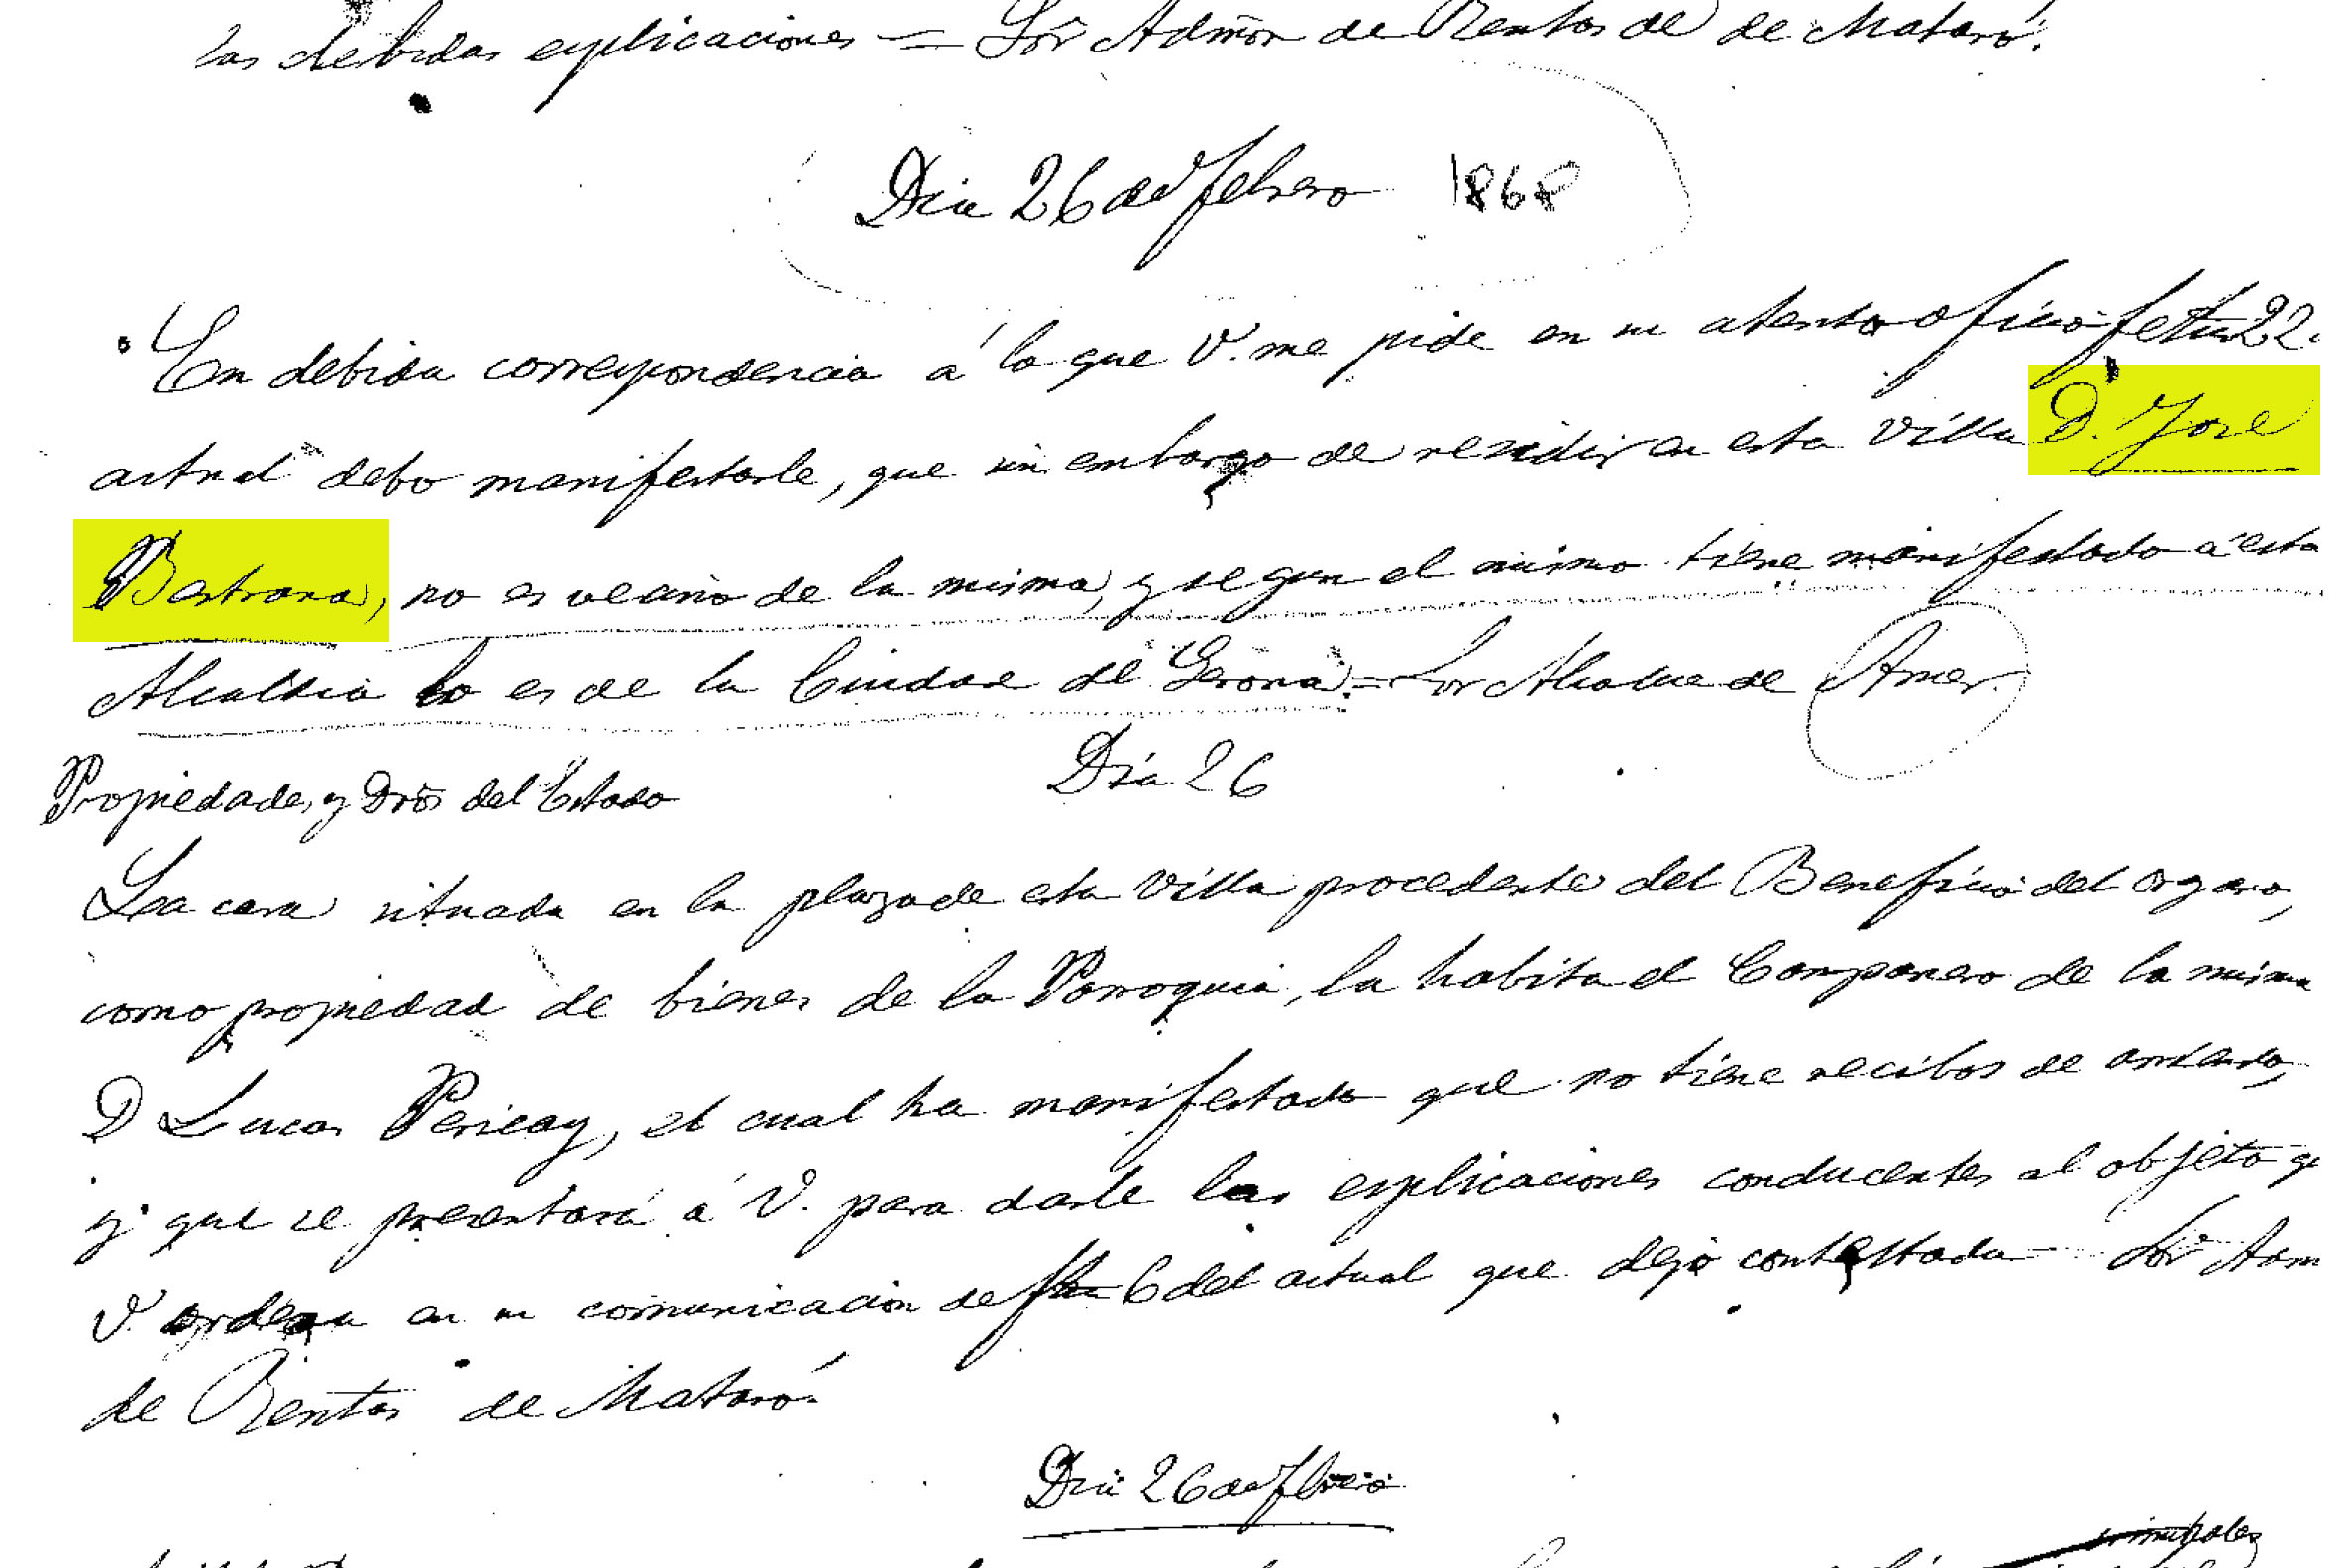 las debidas esplicaciones = Sor Admor de Rentas de de Mataró.
Dia 26 de Febrero 1868
En debida correspondencia á lo que V. me pide en su atento oficio fcha 22
actual debo manifestarle, que sin embargo de residir en esta Villa D. Jose
Bastrana, no es vecino de la misma, y segun el mismo tiene manifestado á esta
Alcaldia lo es de la Ciudad de Gerona. = Sor Alcalde de Amer.
Dia 26
Propiedades y Dros del Estado
La casa situada en la plaza de esta Villa procedente del Beneficio del organo,
como propiedad de bienes de la Parroquia, la habita el Campanero de la misma
D Lucas Pericay, el cual ha manifestado que no tiene recibos de
y que se presentará á V. para darle las esplicaciones conducentes al objeto q
V. ordena en su comunicacion de fha 6 del actual que dejo contestada = Sor Adm
de Rentas de Mataró.
Dia 26 de Fbrero